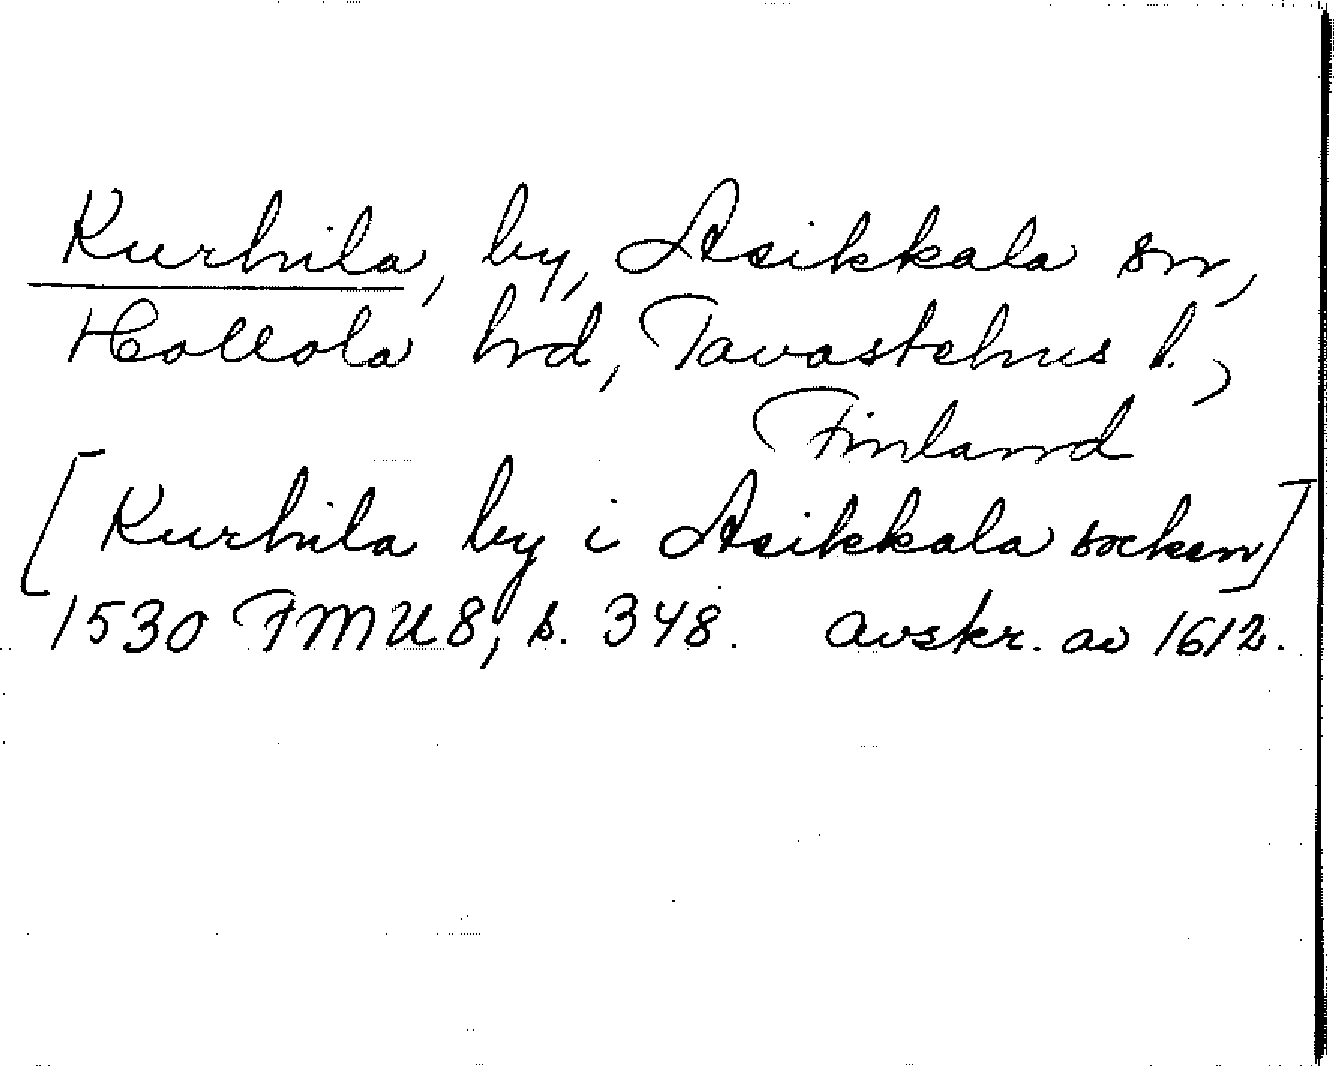 Kurhila, by, Asikkala sn,
Hollola hrd, Tavastehus l.,
Finland
[Kurhila by i Asikkala socken]
1530 FMU8, s. 348. avskr. av 1612.